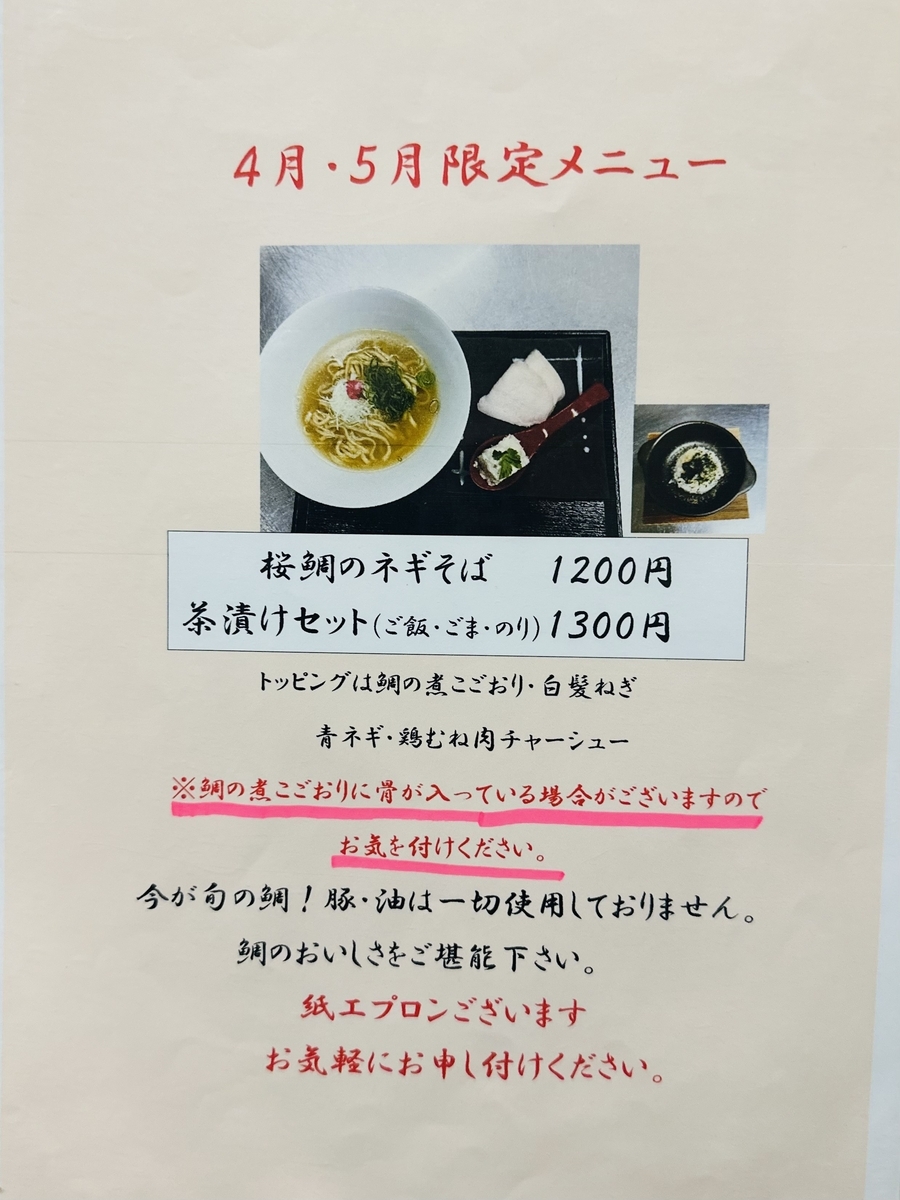 4月・5月限定メニュー
桜鯛のネギそば 1200円
茶漬けセット(ご飯・ごま・のり)1300円
トッピングは鯛の煮こごおり・白髪ねぎ
青ネギ・鶏むね肉チャーシュー
※鯛の煮こごおりに骨が入っている場合がございますので
お気を付けください。
今が旬の鯛!豚・油は一切使用しておりません。
鯛のおいしさをご堪能下さい。
紙エプロンございます
お気軽にお申し付けください。